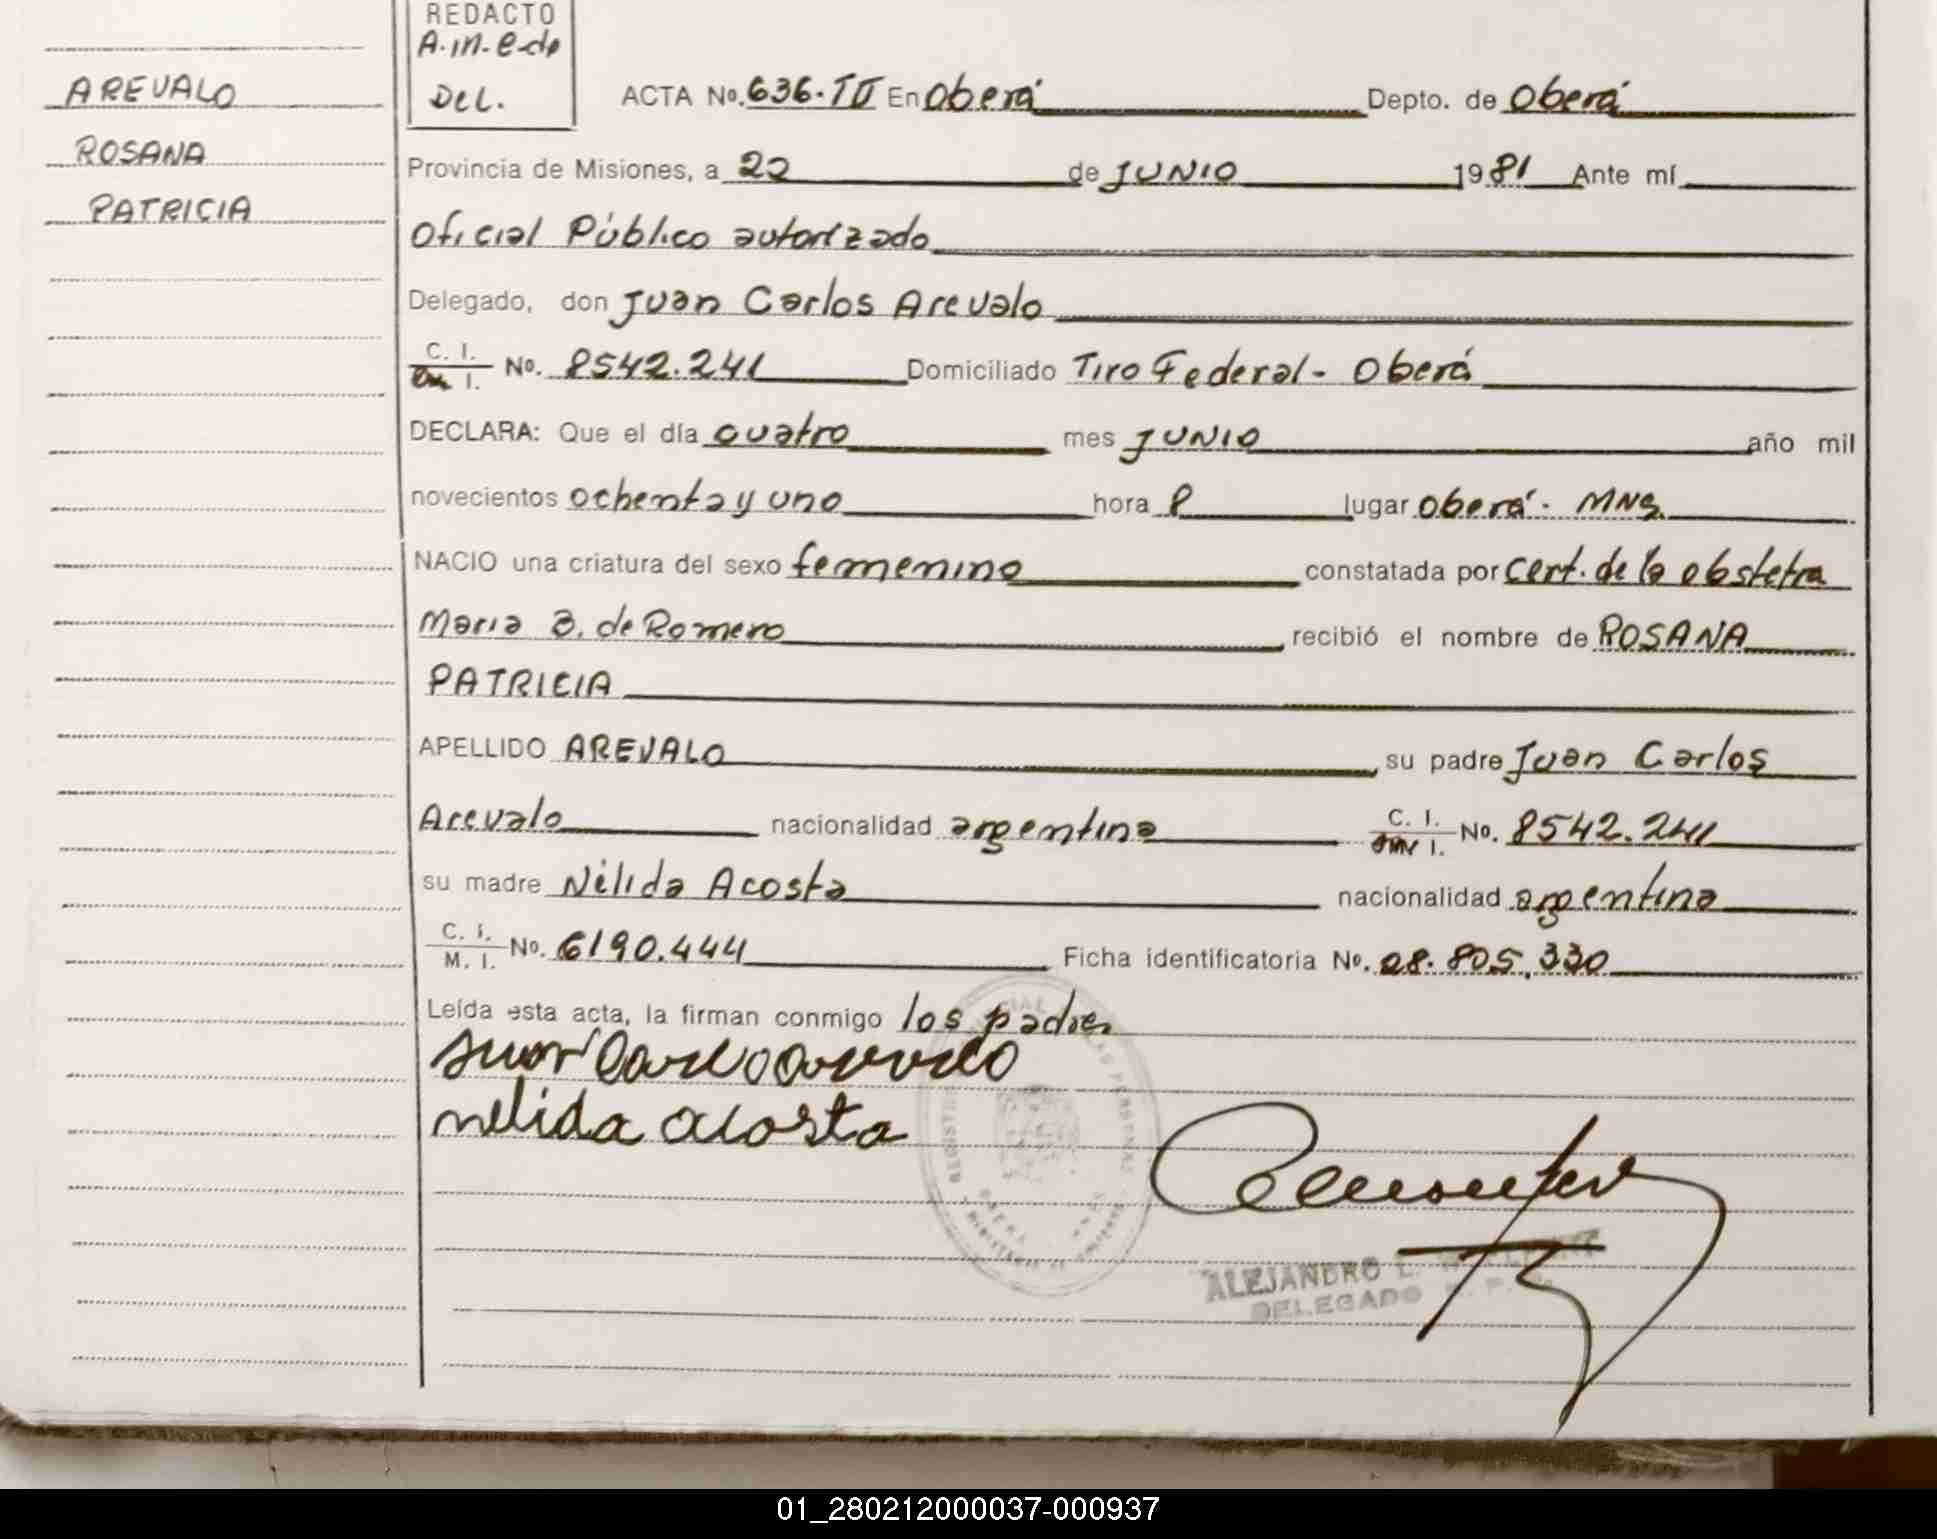 REDACTO
A.in.e-do
Del.
AREVALO
ROSANA
PATRICIA
ACTA No. 636.TII En Oberá Depto. de Oberá
Provincia de Misiones, a 22 de JUNIO 1981 Ante mí
Oficial Público autorizado
Delegado, don Juan Carlos Arevalo
C. I.
I. No. 8542.241 Domiciliado Tiro Federal - Oberá
DECLARA: Que el día cuatro mes JUNIO año mil
novecientos ochenta y uno hora 8 lugar Oberá - MNS.
NACIO una criatura del sexo femenino constatada por cert. de la obstetra
Maria B. de Romero recibió el nombre de ROSANA
PATRICIA
APELLIDO AREVALO su padre Juan Carlos
Arevalo nacionalidad argentina C. I.
I. No. 8542.241
su madre Nélida Acosta nacionalidad argentina
C. I.
M. I. No. 6190.444 Ficha identificatoria No. 28.805.330
Leída esta acta, la firman conmigo los padres
Juan Carlos Arevalo
nelida acosta
ALEJANDRO L.
DELEGADO
01_280212000037-000937